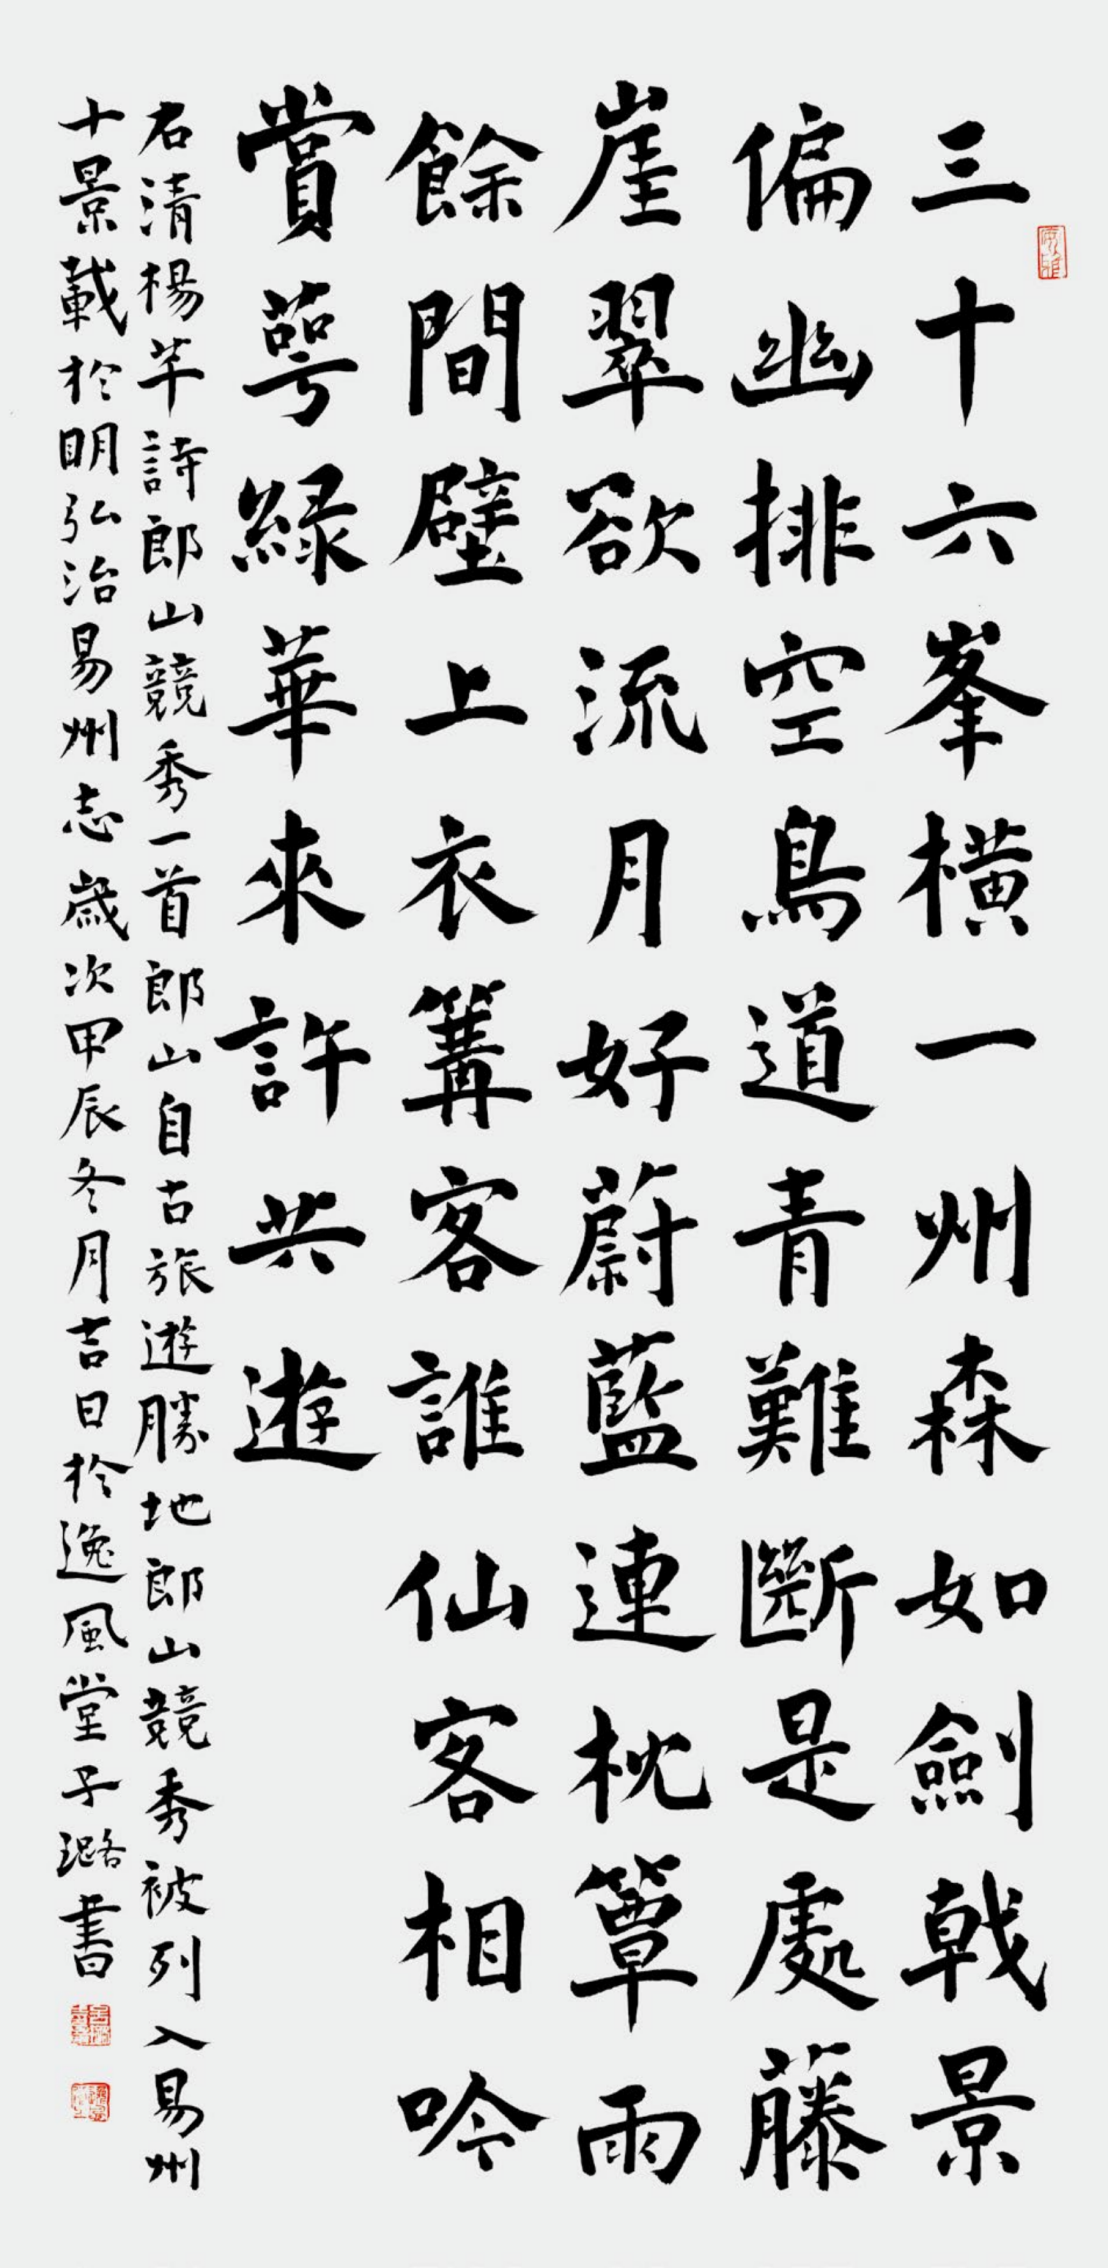 三十六峯橫一州森如劍戟景
偏幽排空鳥道青難斷是處藤
崖翠欲流月好蔚藍連枕簟雨
餘間壁上衣篝客誰仙客相吟
賞萼綠華來許共遊
右清楊芊詩郎山競秀一首郎山自古旅遊勝地郎山競秀被列入易州
十景載於明弘治易州志歲次甲辰冬月吉日於逸風堂子璐書